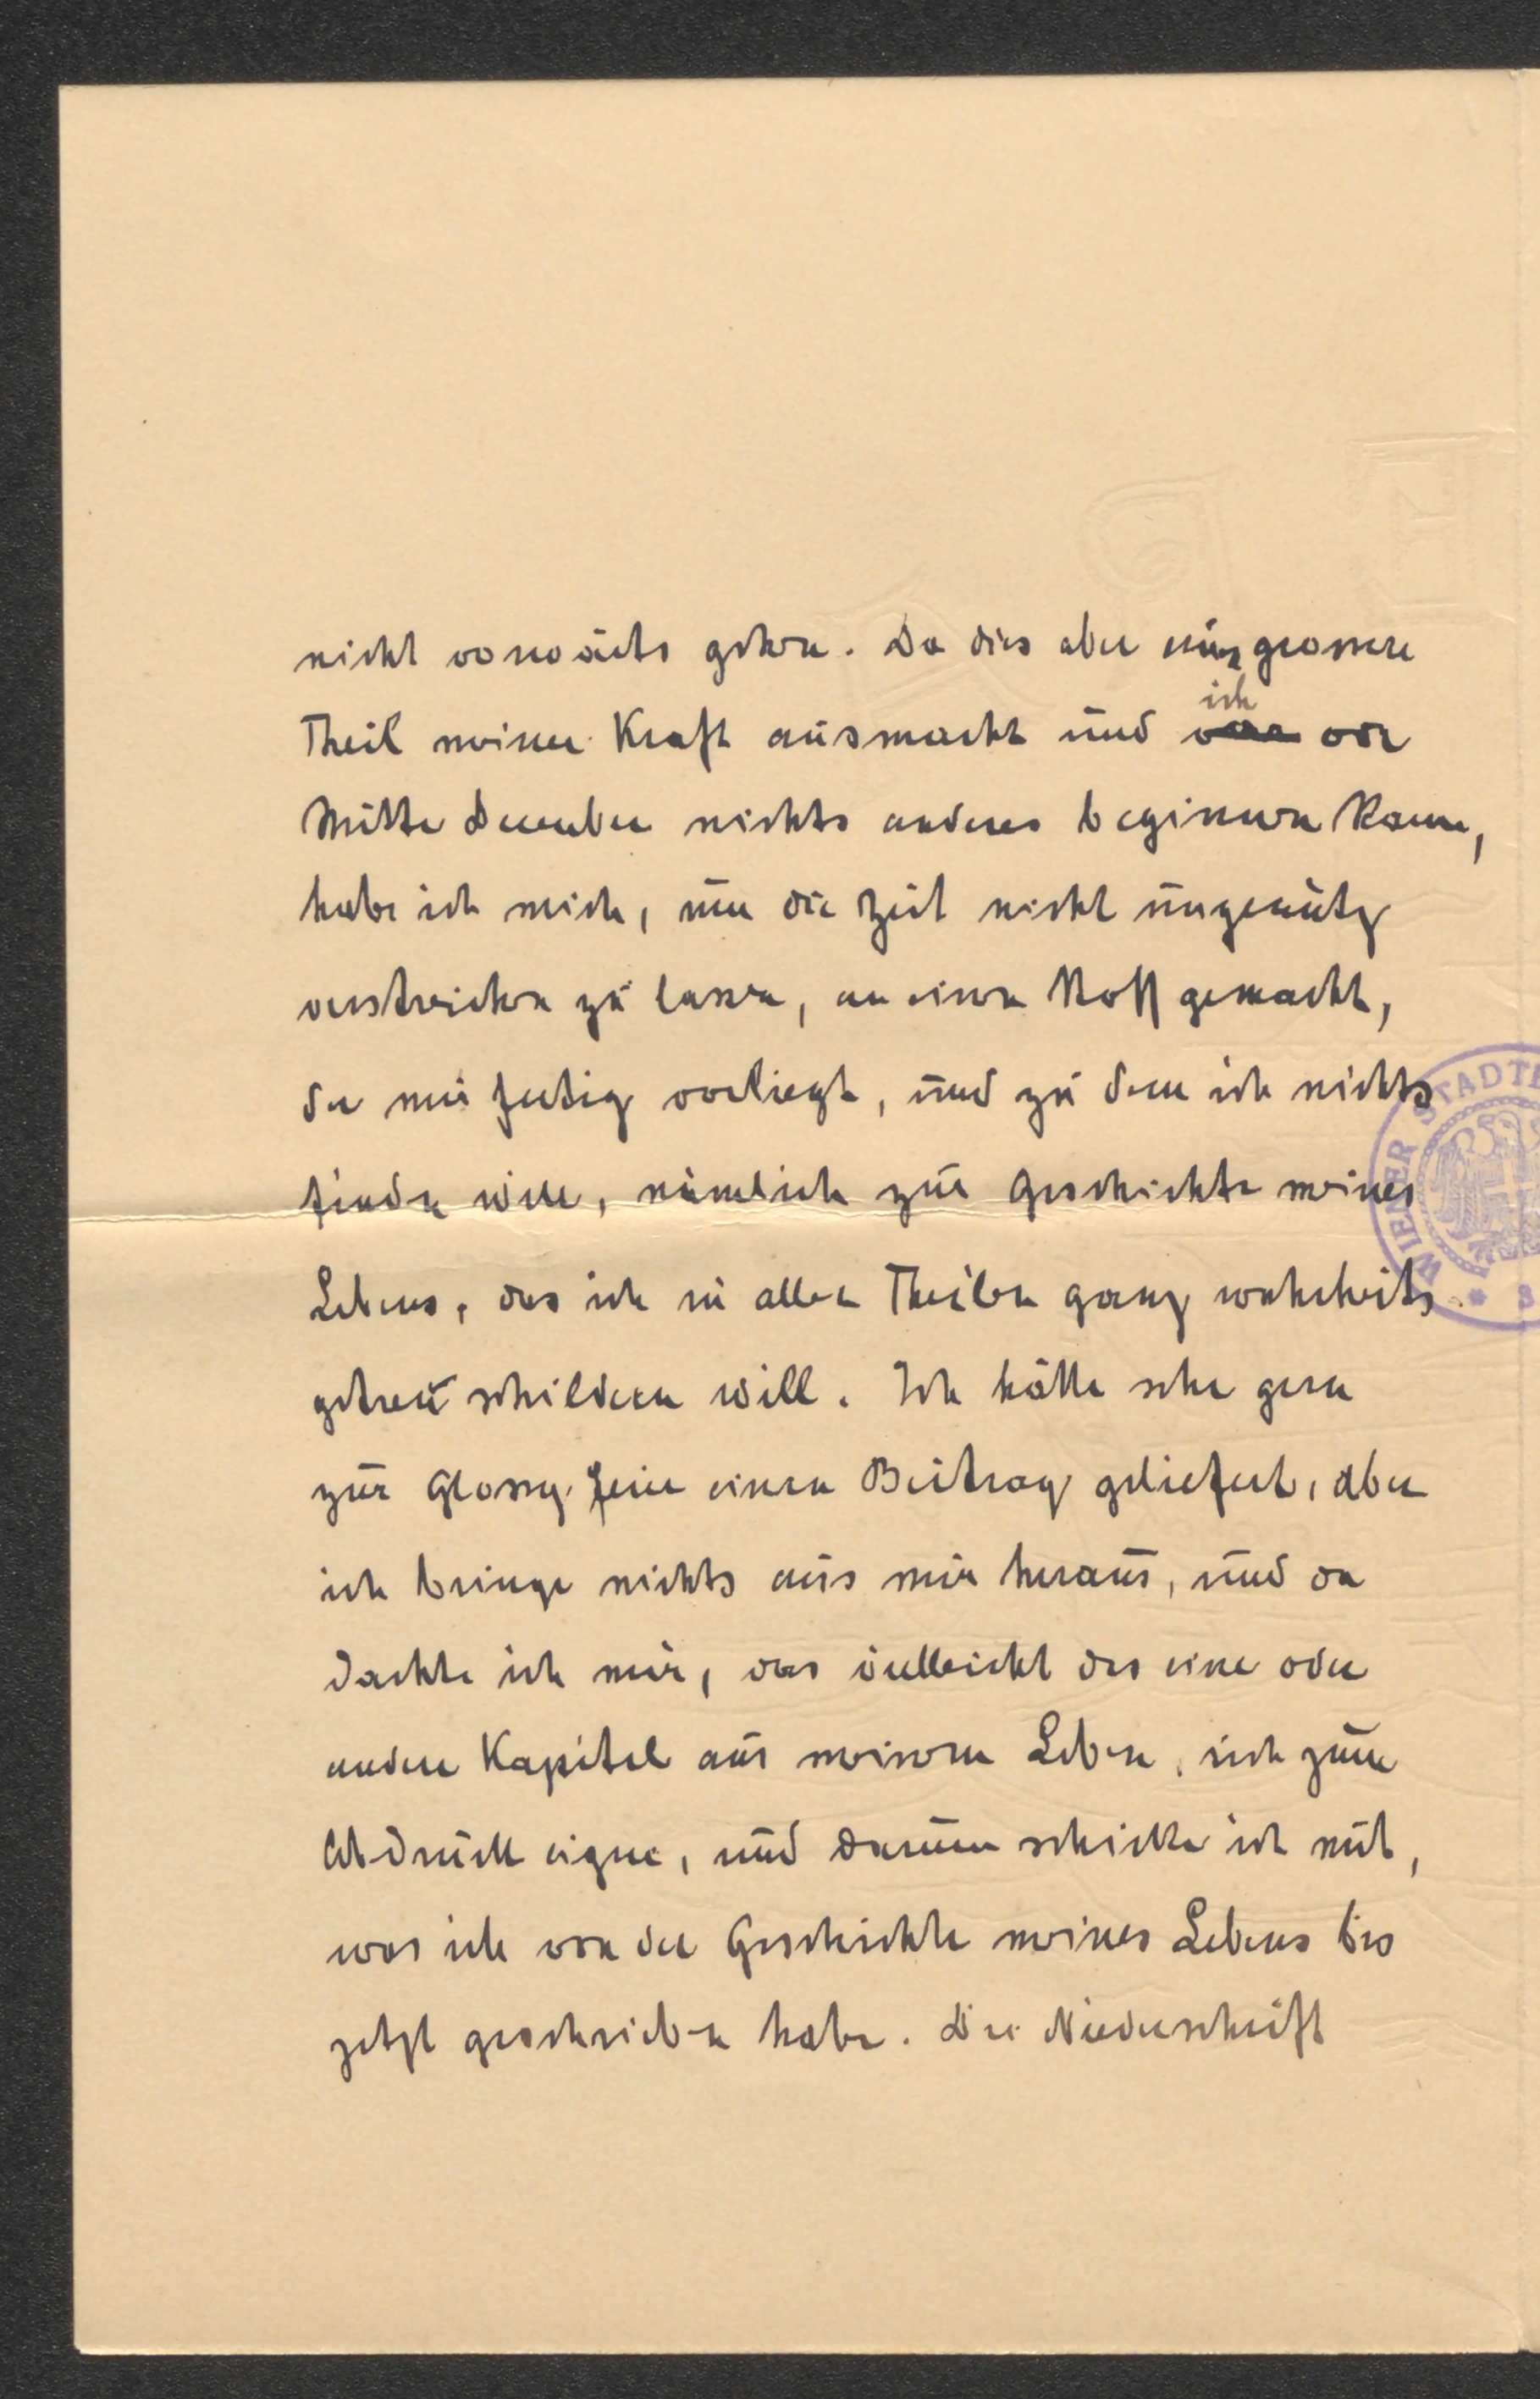 nicht vorwärts gehen. Da dies aber einen grossen
Theil meiner Kraft ausmacht und ich vor
Mitte December nichts anderes beginnen kann,
habe ich mich, um die Zeit nicht ungenützt
verstreichen zu lassen, an einen Stoff gemacht,
der mir fertig vorliegt, und zu dem ich nichts
finden will, nämlich zur Geschichte meines
Lebens, das ich in allen Theilen ganz wahrheits
getreu schildern will. Ich hätte sehr gern
zur Glossy-Feier einen Beitrag geliefert, aber
ich bringe nichts aus mir heraus, und da
dachte ich mir, das vielleicht das eine oder
andere Kapitel aus meinem Leben, sich zum
Abdruck eigne, und darum schicke ich mit,
was ich von der Geschichte meines Lebens bis
jetzt geschrieben habe. Die Niederschrift
WIENER STADT